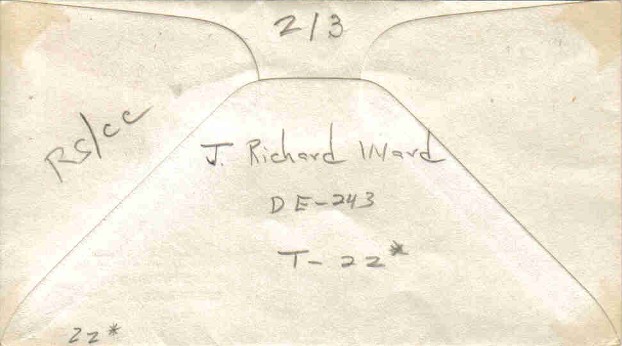 2/3
RS/CC
J. Richard Ward
DE-243
T-22*
22*